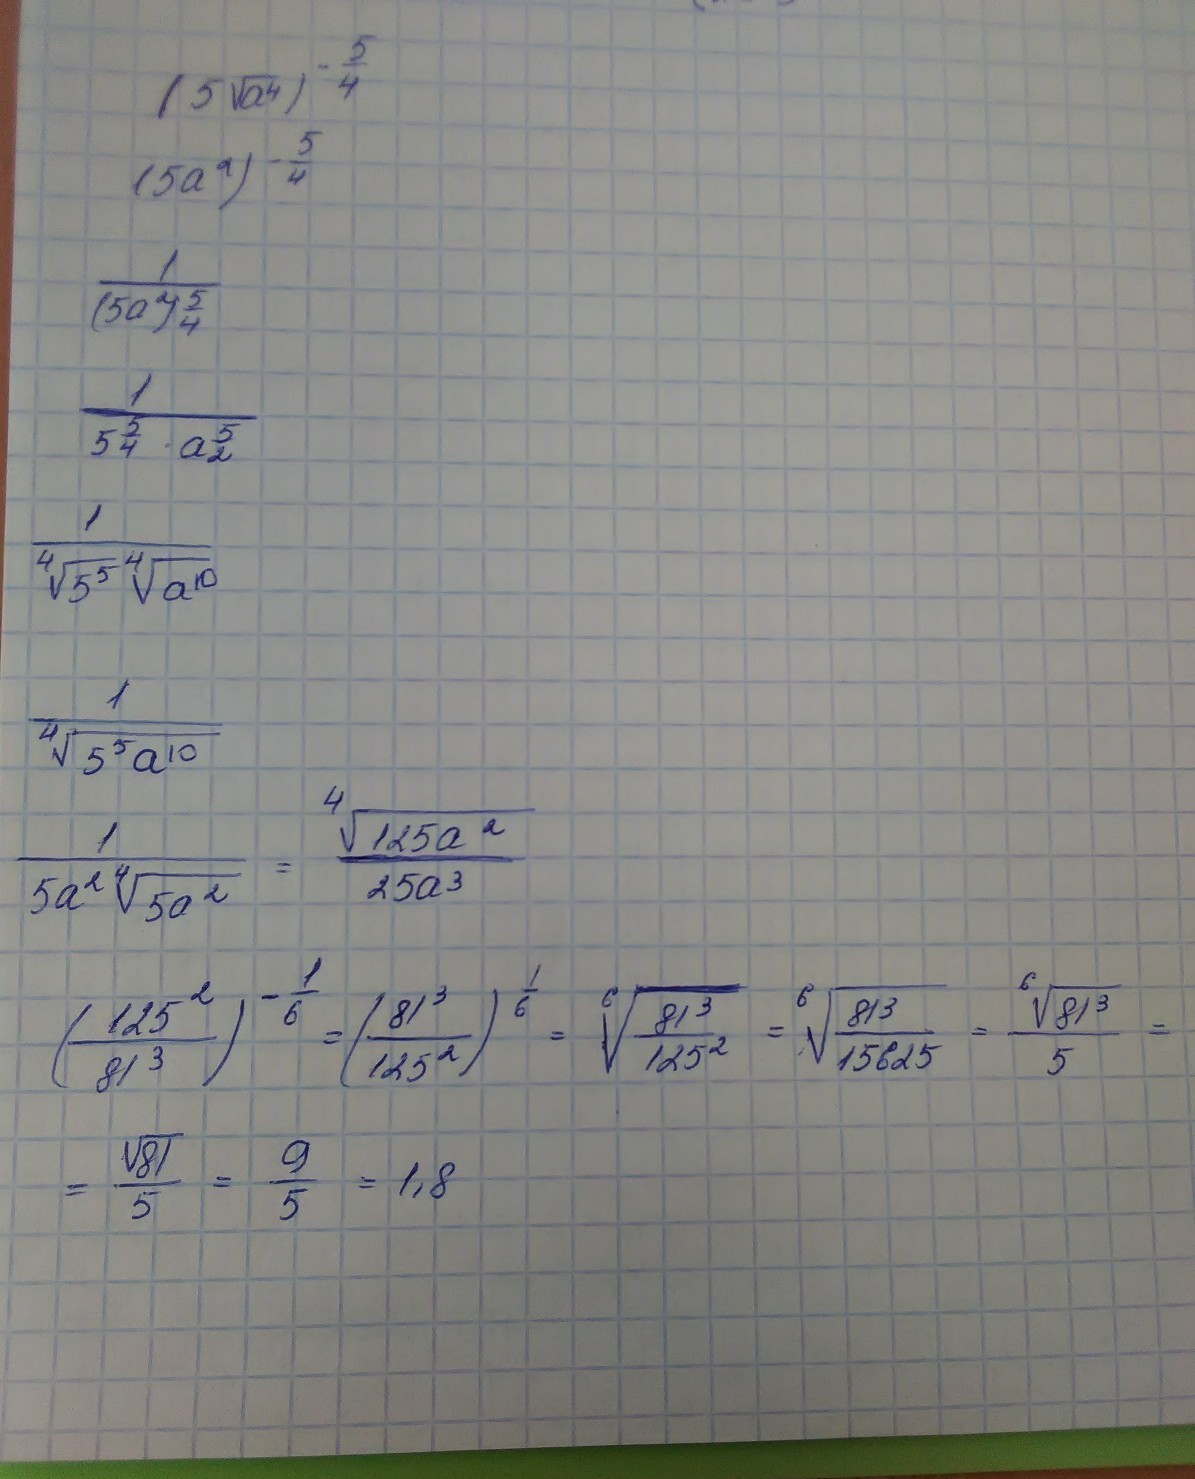 (5√a⁴)^(-5/4)
(5a²)^(-5/4)
1/((5a²)^(5/4))
1/(5^(5/4) · a^(5/2))
1/(⁴√(5⁵) ⁴√(a¹⁰))
1/(⁴√(5⁵a¹⁰))
1/(5a² ⁴√(5a²)) = ⁴√(125a²)/(25a³)
(125²/81³)^(-1/6) = (81³/125²)^(1/6) = ⁶√(81³/125²) = ⁶√(81³/15625) = ⁶√(81³)/5 =
= √81/5 = 9/5 = 1,8